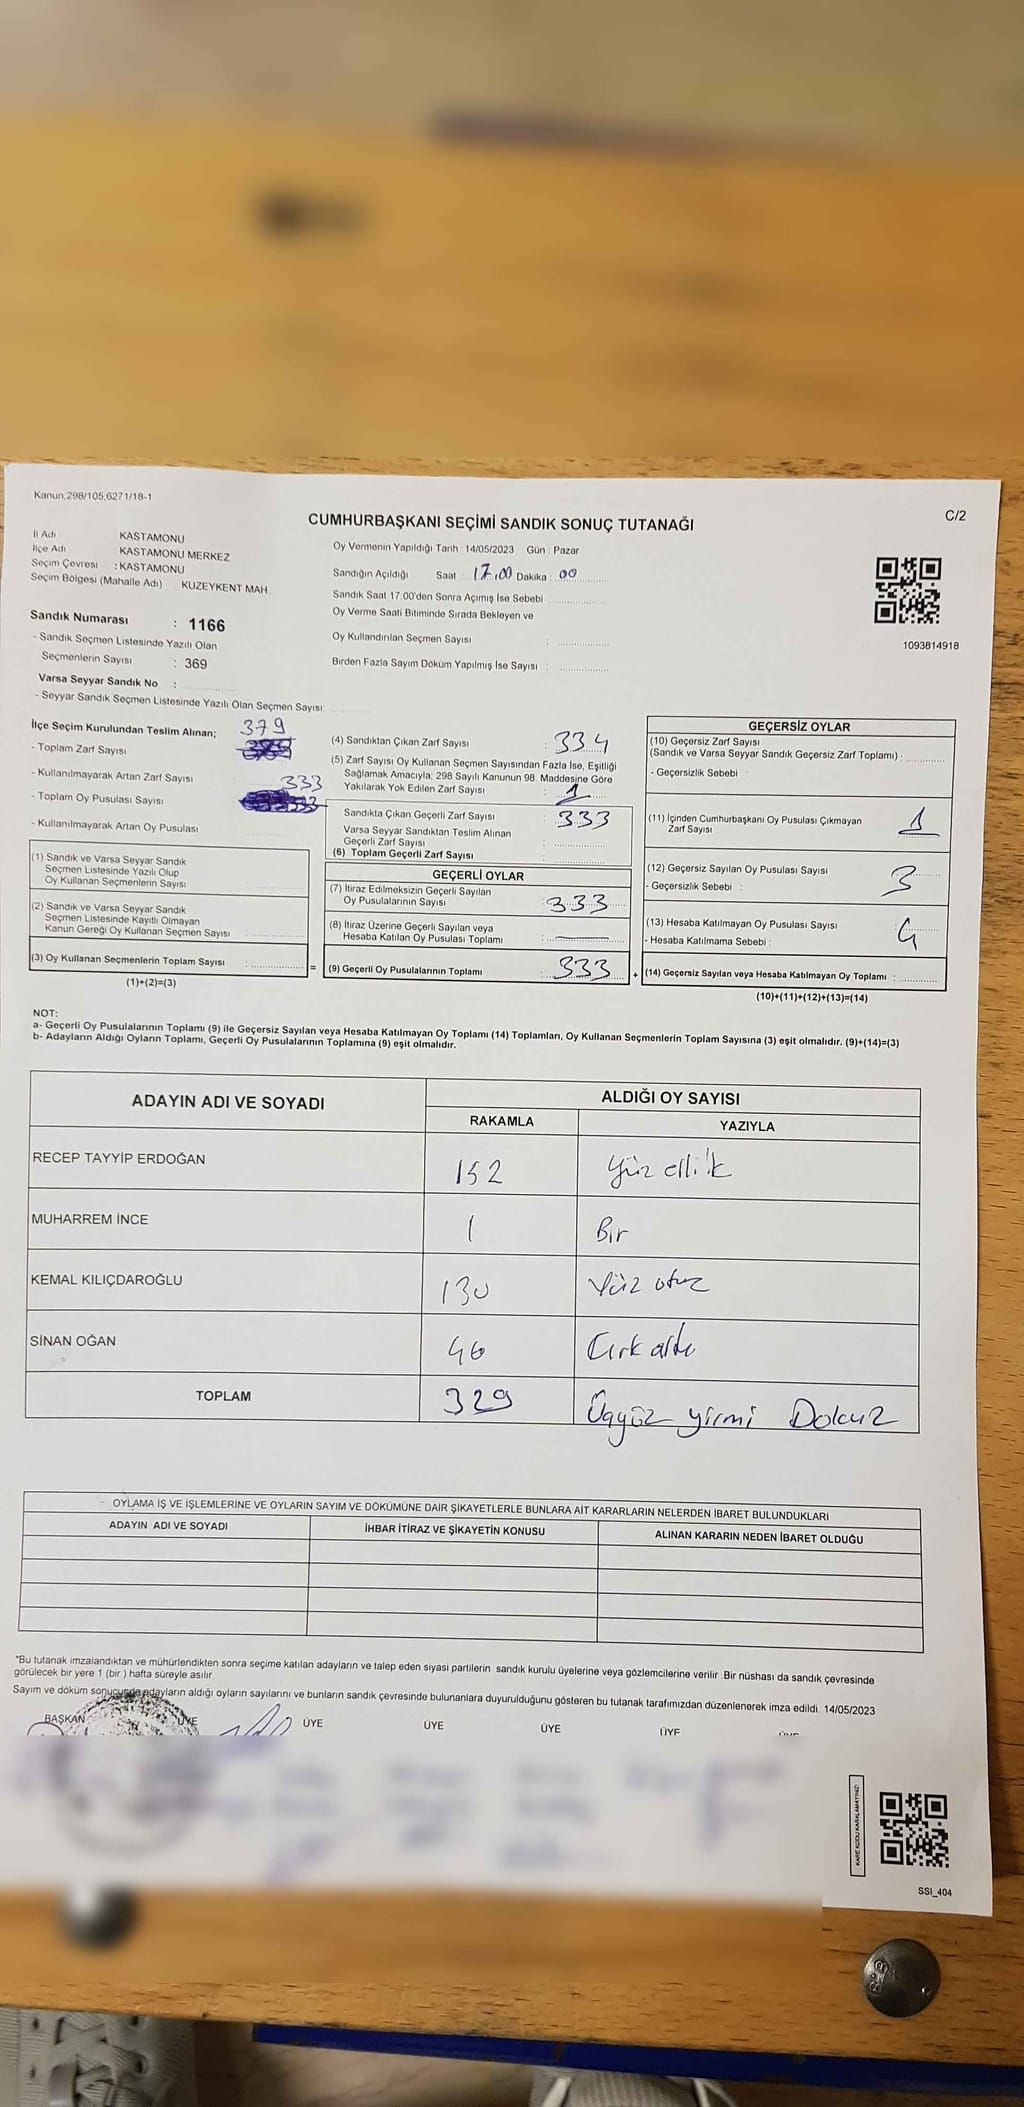 Kanun:298/105;6271/18-1
C/2
CUMHURBAŞKANI SEÇİMİ SANDIK SONUÇ TUTANAĞI
İl Adı KASTAMONU
İlçe Adı KASTAMONU MERKEZ
Seçim Çevresi : KASTAMONU
Seçim Bölgesi (Mahalle Adı) KUZEYKENT MAH.
Sandık Numarası : 1166
- Sandık Seçmen Listesinde Yazılı Olan
Seçmenlerin Sayısı : 369
Varsa Seyyar Sandık No :
- Seyyar Sandık Seçmen Listesinde Yazılı Olan Seçmen Sayısı:
Oy Vermenin Yapıldığı Tarih : 14/05/2023 Gün : Pazar
Sandığın Açıldığı Saat : 17.00 Dakika : 00
Sandık Saat 17:00'den Sonra Açımış İse Sebebi :
Oy Verme Saati Bitiminde Sırada Bekleyen ve
Oy Kullandırılan Seçmen Sayısı :
Birden Fazla Sayım Döküm Yapılmış İse Sayısı :
1093814918
İlçe Seçim Kurulundan Teslim Alınan; 379
- Toplam Zarf Sayısı
- Kullanılmayarak Artan Zarf Sayısı 333
- Toplam Oy Pusulası Sayısı
- Kullanılmayarak Artan Oy Pusulası
(1) Sandık ve Varsa Seyyar Sandık
Seçmen Listesinde Yazılı Olup
Oy Kullanan Seçmenlerin Sayısı
(2) Sandık ve Varsa Seyyar Sandık
Seçmen Listesinde Kayıtlı Olmayan
Kanun Gereği Oy Kullanan Seçmen Sayısı :
(3) Oy Kullanan Seçmenlerin Toplam Sayısı :
(1)+(2)=(3)
=
(4) Sandıktan Çıkan Zarf Sayısı : 334
(5) Zarf Sayısı Oy Kullanan Seçmen Sayısından Fazla İse, Eşitliği
Sağlamak Amacıyla; 298 Sayılı Kanunun 98. Maddesine Göre
Yakılarak Yok Edilen Zarf Sayısı : 1
Sandıkta Çıkan Geçerli Zarf Sayısı : 333
Varsa Seyyar Sandıktan Teslim Alınan
Geçerli Zarf Sayısı :
(6) Toplam Geçerli Zarf Sayısı :
GEÇERLİ OYLAR
(7) İtiraz Edilmeksizin Geçerli Sayılan
Oy Pusulalarının Sayısı : 333
(8) İtiraz Üzerine Geçerli Sayılan veya
Hesaba Katılan Oy Pusulası Toplamı : —
(9) Geçerli Oy Pusulalarının Toplamı : 333
+
GEÇERSİZ OYLAR
(10) Geçersiz Zarf Sayısı
(Sandık ve Varsa Seyyar Sandık Geçersiz Zarf Toplamı) :
- Geçersizlik Sebebi :
(11) İçinden Cumhurbaşkanı Oy Pusulası Çıkmayan
Zarf Sayısı 1
(12) Geçersiz Sayılan Oy Pusulası Sayısı 3
- Geçersizlik Sebebi :
(13) Hesaba Katılmayan Oy Pusulası Sayısı 4
- Hesaba Katılmama Sebebi :
(14) Geçersiz Sayılan veya Hesaba Katılmayan Oy Toplamı :
(10)+(11)+(12)+(13)=(14)
NOT:
a- Geçerli Oy Pusulalarının Toplamı (9) ile Geçersiz Sayılan veya Hesaba Katılmayan Oy Toplamı (14) Toplamları, Oy Kullanan Seçmenlerin Toplam Sayısına (3) eşit olmalıdır. (9)+(14)=(3)
b- Adayların Aldığı Oyların Toplamı, Geçerli Oy Pusulalarının Toplamına (9) eşit olmalıdır.
ADAYIN ADI VE SOYADI ALDIĞI OY SAYISI
RAKAMLA YAZIYLA
RECEP TAYYİP ERDOĞAN 152 Yüz elli ik
MUHARREM İNCE 1 Bir
KEMAL KILIÇDAROĞLU 130 Yüz otuz
SİNAN OĞAN 46 Kırk altı
TOPLAM 329 Üçyüz yirmi Dokuz
- OYLAMA İŞ VE İŞLEMLERİNE VE OYLARIN SAYIM VE DÖKÜMÜNE DAİR ŞİKAYETLERLE BUNLARA AİT KARARLARIN NELERDEN İBARET BULUNDUKLARI
ADAYIN ADI VE SOYADI İHBAR İTİRAZ VE ŞİKAYETİN KONUSU ALINAN KARARIN NEDEN İBARET OLDUĞU
*Bu tutanak imzalandıktan ve mühürlendikten sonra seçime katılan adayların ve talep eden siyasi partilerin sandık kurulu üyelerine veya gözlemcilerine verilir. Bir nüshası da sandık çevresinde
görülecek bir yere 1 (bir ) hafta süreyle asılır.
Sayım ve döküm sonucunda adayların aldığı oyların sayılarını ve bunların sandık çevresinde bulunanlara duyurulduğunu gösteren bu tutanak tarafımızdan düzenlenerek imza edildi. 14/05/2023
BAŞKAN ÜYE ÜYE ÜYE ÜYE ÜYE
KARE KODU KARALAMAYINIZ!
SSI_404